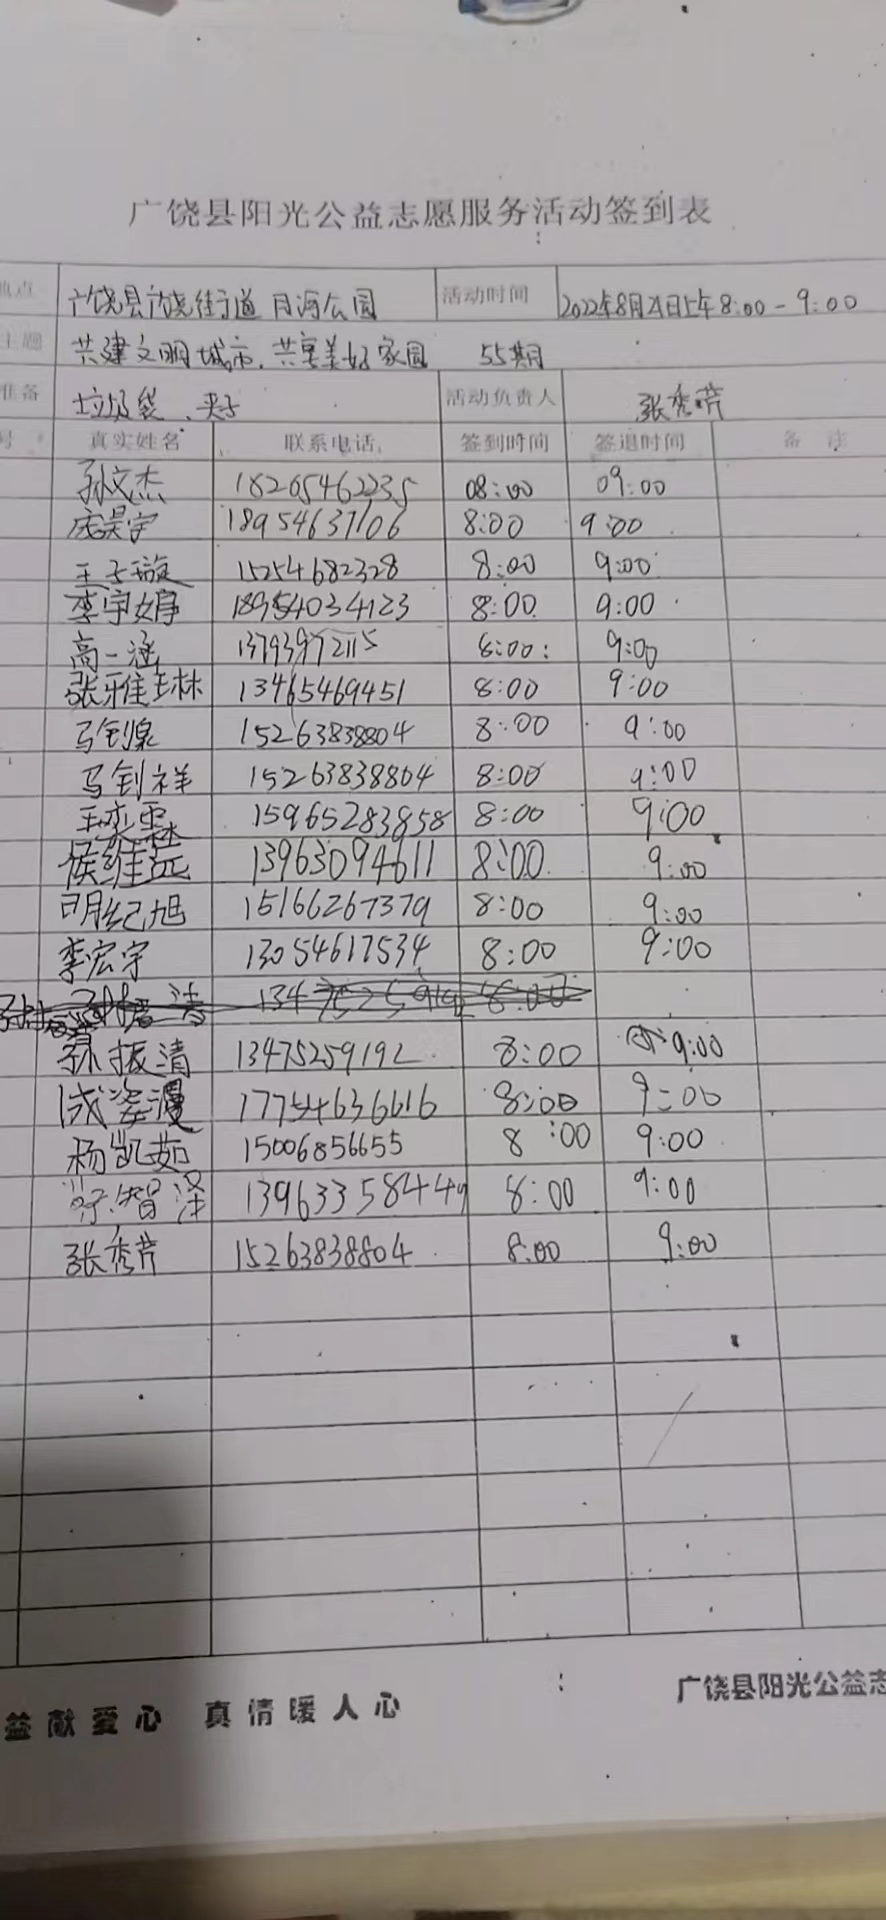 广饶县阳光公益志愿服务活动签到表
地点 广饶县广饶街道月河公园 活动时间 2022年8月21日上午8:00-9:00
主题 共建文明城市、共享美好家园 55期
准备 垃圾袋、夹子 活动负责人 张秀芹
号 真实姓名 联系电话 签到时间 签退时间 备注
孙文杰 18205462235 08:00 09:00
庞昊宇 18954637106 8:00 9:00
王子璇 15254682328 8:00 9:00
李宇婷 18954034123 8:00 9:00
高一涵 13793972115 8:00 9:00
张雅琳 13465469451 8:00 9:00
马钊泉 15263838804 8:00 9:00
马钊祥 15263838804 8:00 9:00
王奕霖 15965283858 8:00 9:00
侯维远 13963094611 8:00 9:00
明纪旭 15166267379 8:00 9:00
李宏宇 13054617534 8:00 9:00
孙振清 13475259192 8:00 9:00
成姿漫 17754636616 8:00 9:00
杨凯茹 15006856655 8:00 9:00
智泽 13963358449 8:00 9:00
张秀芹 15263838804 8:00 9:00
益献爱心 真情暖人心 广饶县阳光公益志